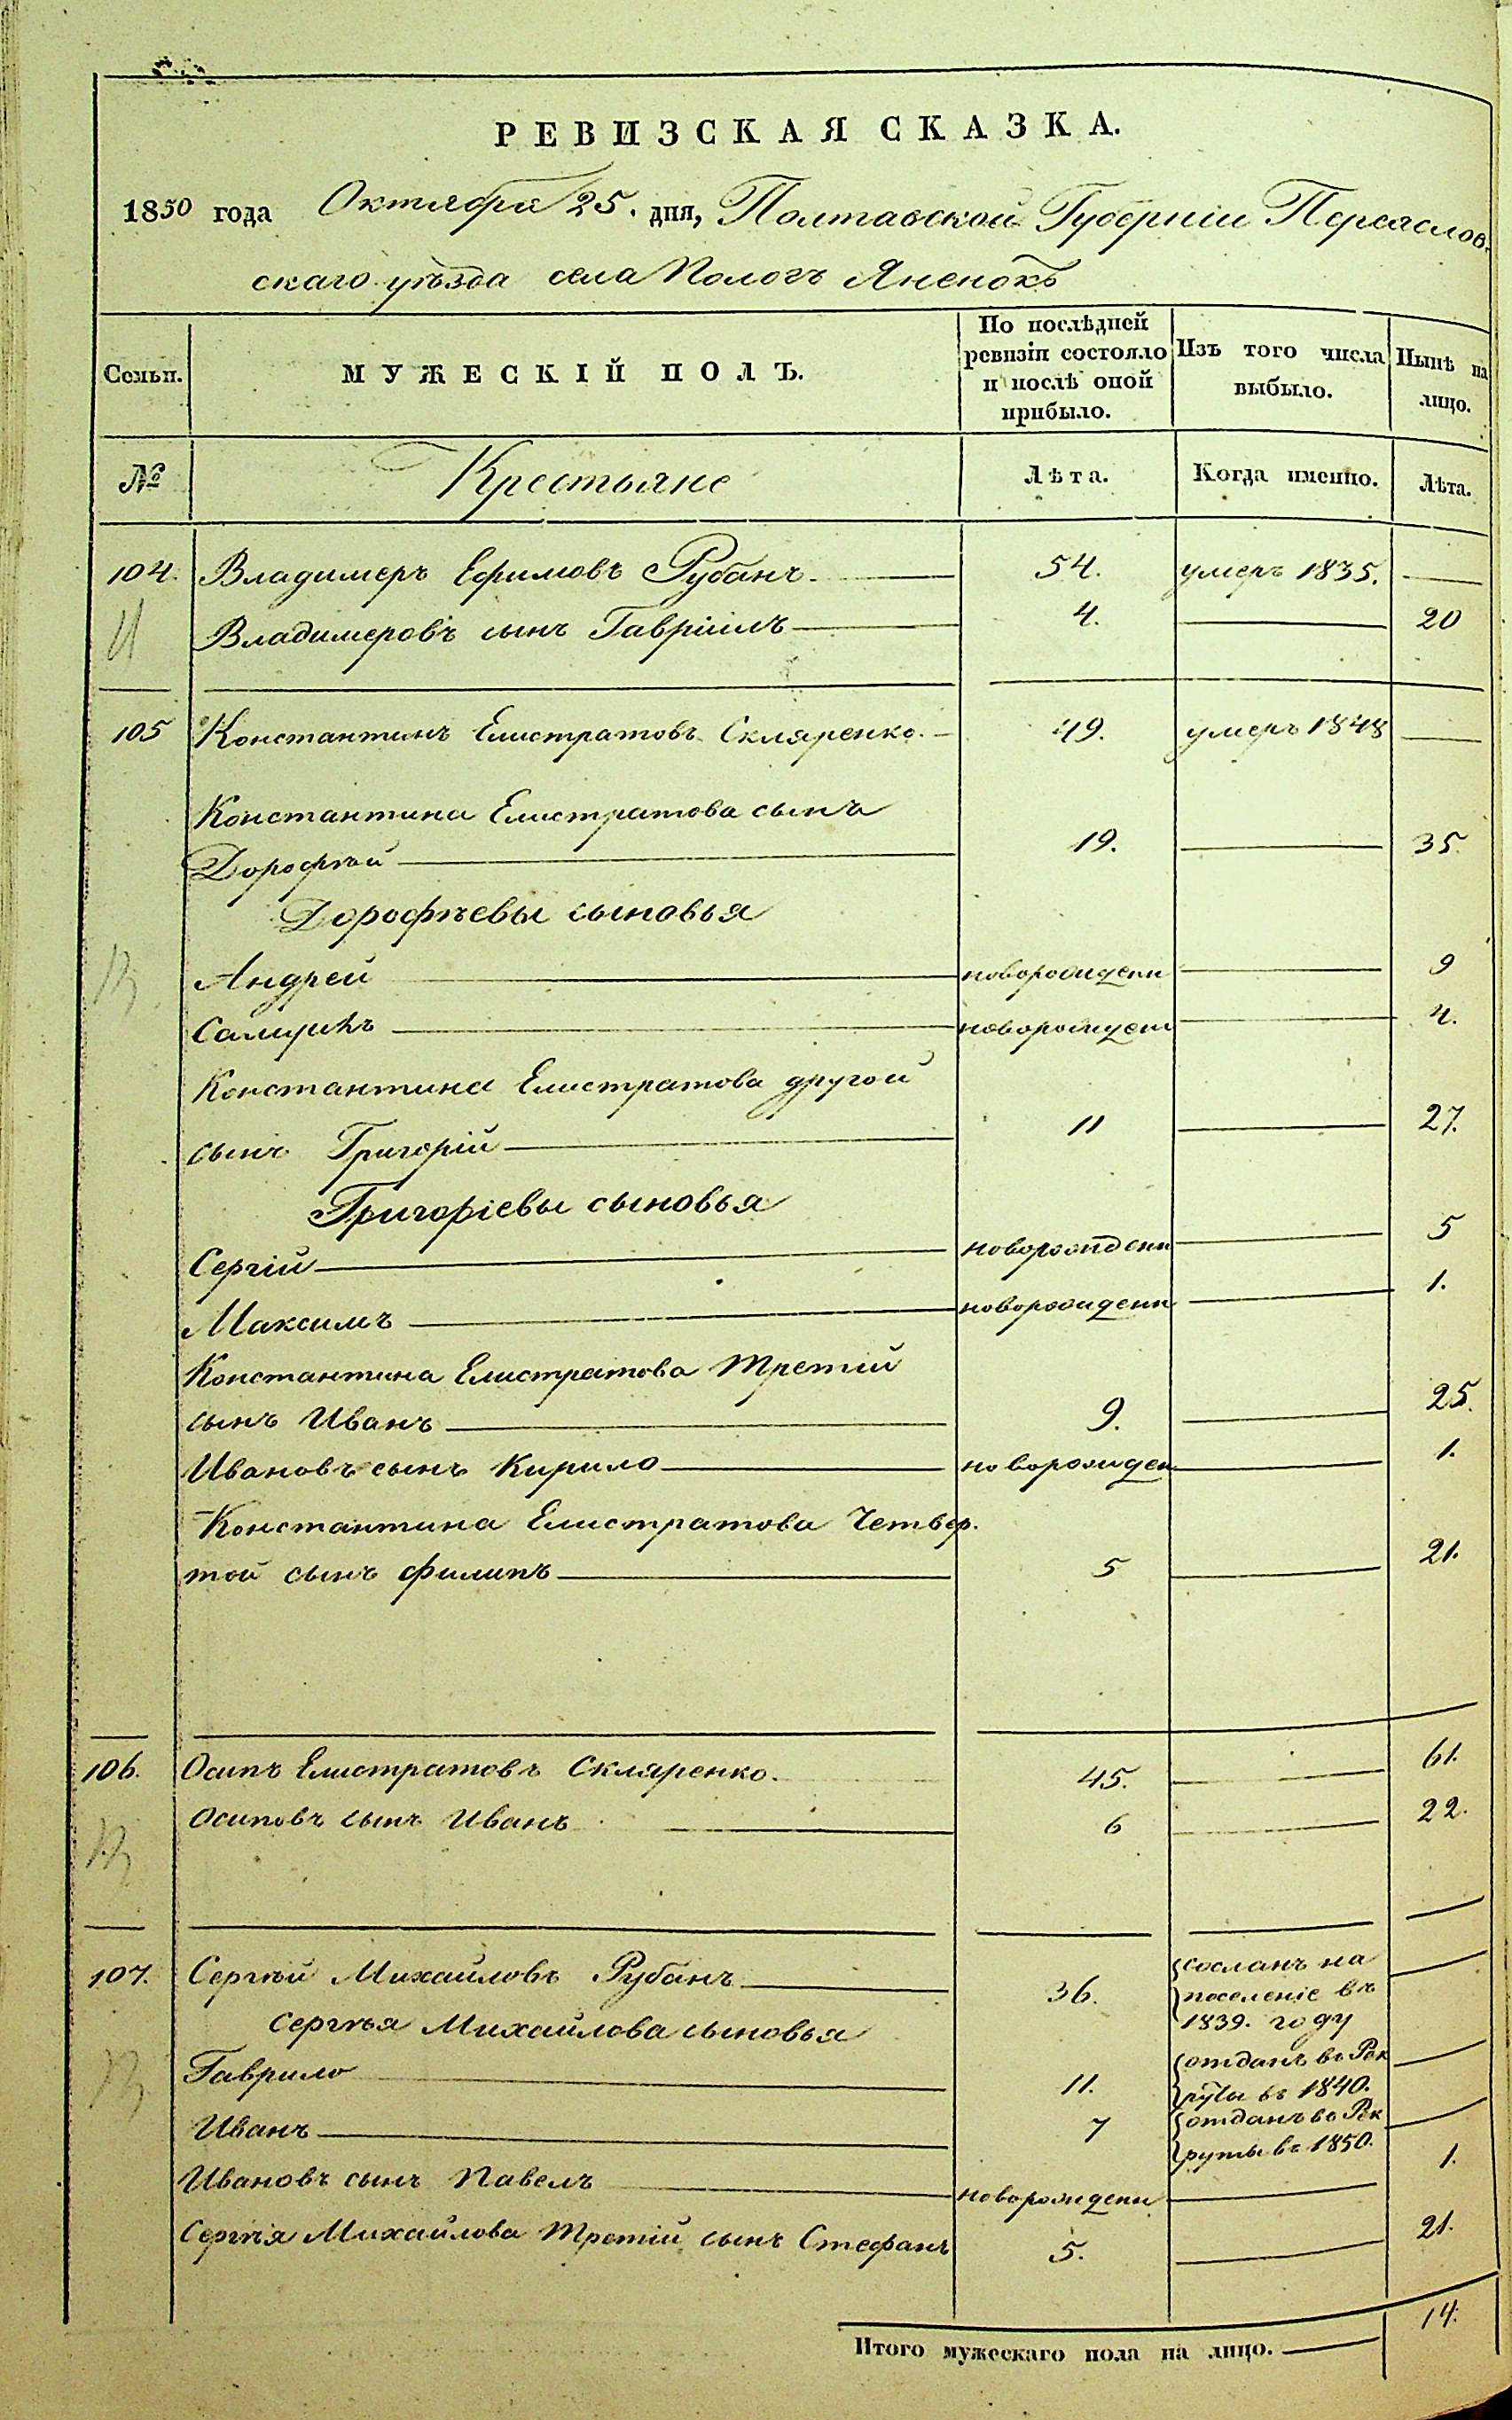 РЕВИЗСКАЯ СКАЗКА.
1850 года Октября 25. дня, Полтавской Губерніи Переяслов-
скаго уѣзда села Пологъ Яненокъ
Семьи. МУЖЕСКІЙ ПОЛЪ. По послѣдней ревизіи состояло и послѣ оной прибыло. Изъ того числа выбыло. Нынѣ на лицо.
№ Крестьяне Лѣта. Когда именно. Лѣта.
104. Владимеръ Ефимовъ Рубанъ. 54. умеръ 1835.
Владимеровъ сынъ Гавріилъ 4. 20
105 Константинъ Елистратовъ Скляренко. 49. умеръ 1848
Константина Елистратова сынъ
Дорофѣй 19. 35.
Дорофѣевы сыновья
Андрей новорожденн 9
Самуилъ новорожден 4.
Константина Елистратова другой
сынъ Григорій 11 27.
Григоріевы сыновья
Сергій новорожденн 5
Максимъ новорожденн 1.
Константина Елистратова третій
сынъ Иванъ 9. 25.
Ивановъ сынъ Кирило новорожден 1.
Константина Елистратова Четвер.
той сынъ Филипъ 5 21.
106. Осипъ Елистратовъ Скляренко. 45. 61.
Осиповъ сынъ Иванъ 6 22.
107. Сергѣй Михайловъ Рубанъ 36. сосланъ на
поселеніе въ
1839. году
Сергѣя Михайлова сыновья
Гаврило 11. отданъ въ Рек
руты въ 1840.
Иванъ 7 отданъ въ Рек
руты въ 1850.
Ивановъ сынъ Павелъ новорожденн 1.
Сергѣя Михайлова третій сынъ Стефанъ 5. 21.
Итого мужескаго пола на лицо. 14.